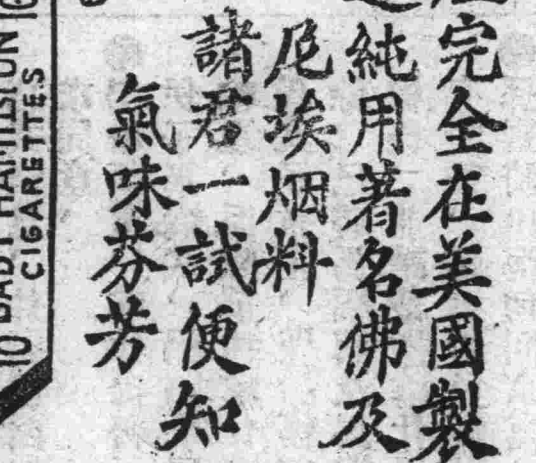 完全在美國製
純用著名佛及
尼埃烟料
諸君一試便知
氣味芬芳
10 LADY HAMILTON
CIGARETTES
10